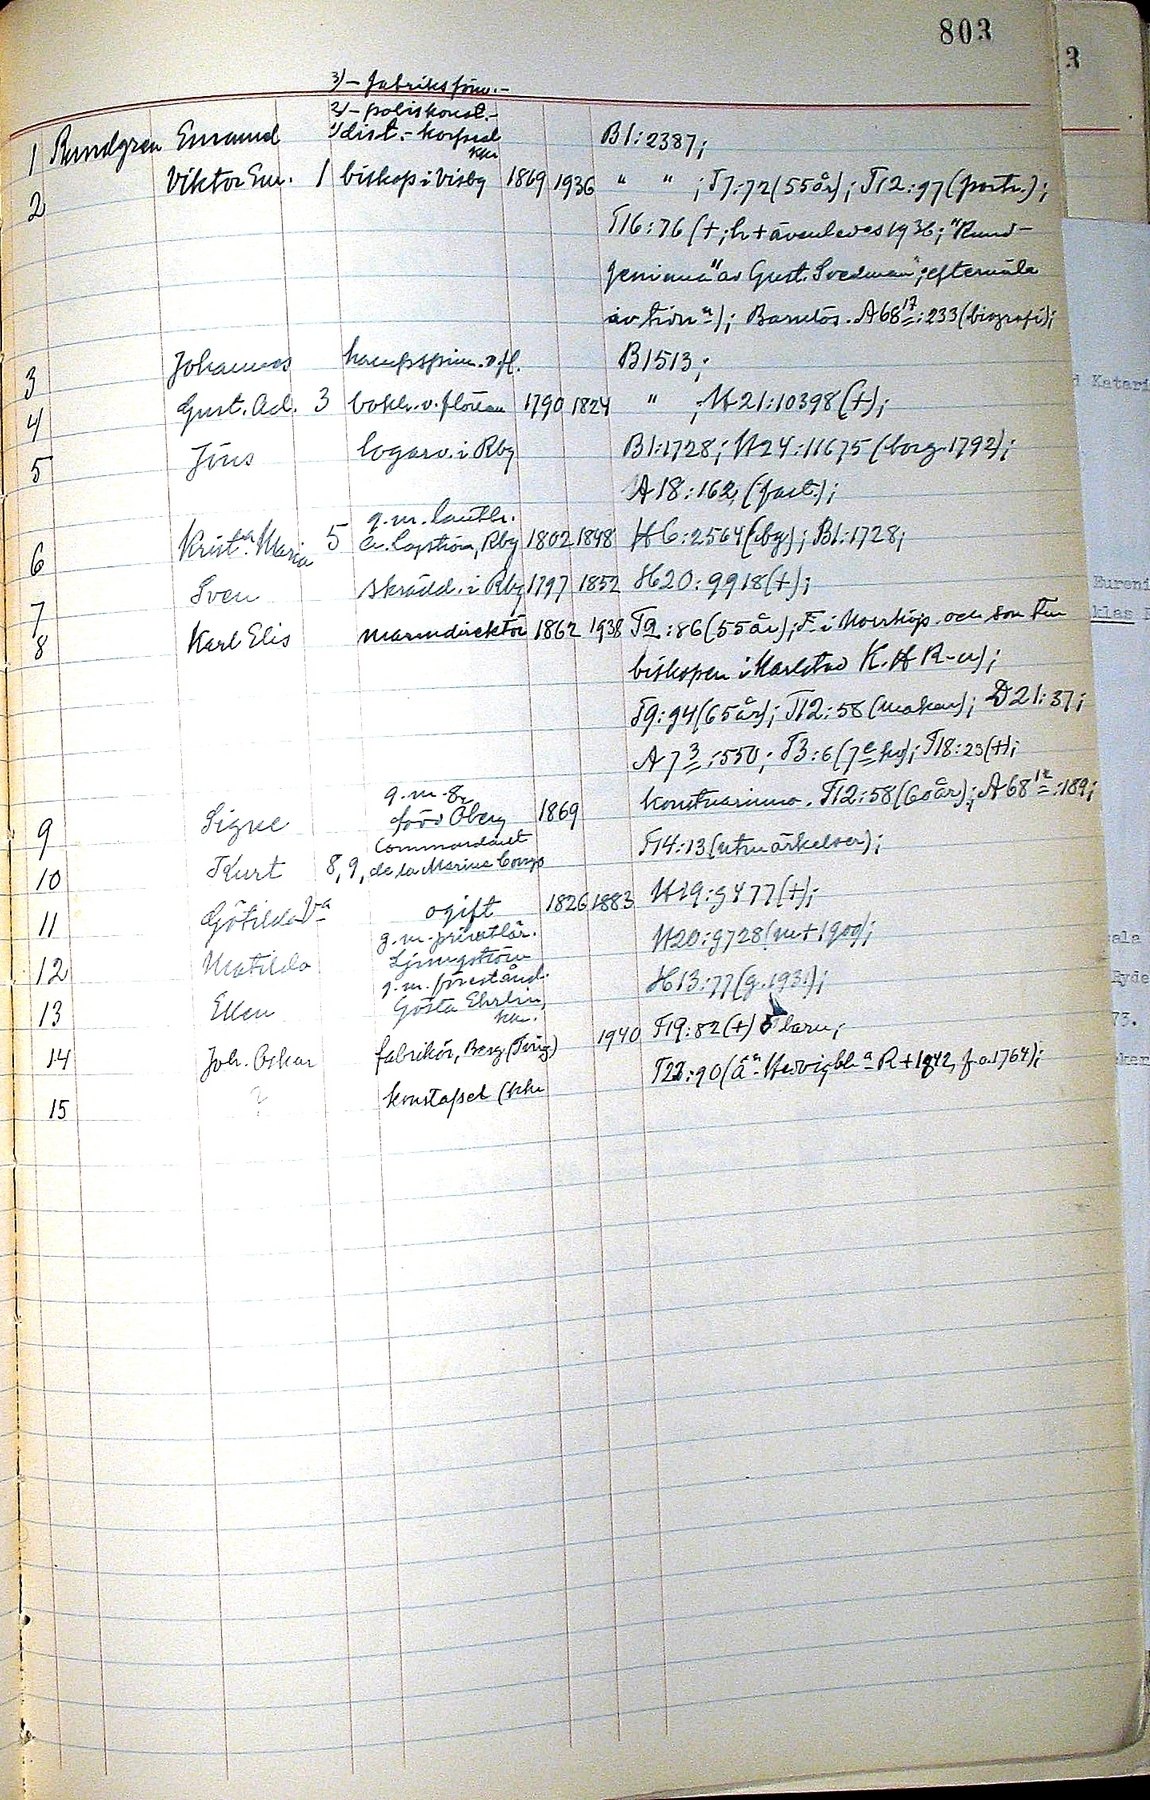 803
3
3) – fabriksförv. –
2) – poliskonst. –
1 Rundgren Emanuel 1) dist. – korpral B1:2387;
Kkr
2 Viktor Em. 1 biskop i Visby 1869 1936 " " ; T7:72 (55 år); T12:97 (portr.);
T16:76 (+; h + ävenledes 1936; "Rund-
av Gust. Svedman"; eftermäle
av hon); Barnlös. A68 17:233 (biografi);
3 Johannes B1513;
4 Gust. Ad. 3 1790 1824 " ; H21:10398 (+);
5 Jöns logarv. i Rby B1:1728; H24:11675 (borg. 1792);
A18:162, (fast.);
g. m. lanthr.
6 Krist.a Maria 5 Rby 1802 1848 H6:2564 (bg); B1:1728;
7 Sven skrädd. i Rby 1797 1852 H20:9918 (+);
8 Karl Elis marindirektör 1862 1938 T2:86 (55 år); F. i Norrköp. och son t.
biskopen i Karlstad K. H R-n);
T9:94 (65 år); T12:58 (makan); D21:37;
A7 3:550; T3:6 (7e hg); T18:23 (+);
g. m. 8,
9 Signe född Öberg 1869 konstnärinna. T12:58 (60 år); A68 12:189;
Commandant
10 Kurt 8, 9, de la Marine Corps T14:13 (utmärkelser);
11 Götilda Va ogift 1826 1883 H19:9477 (+);
g. m. privatlär.
12 Matilda Ljungström H20:9728 (m + 1900);
g. m. förestånd.
13 Ellen Gösta Ehrlin, H13:77 (g. 1931);
Kkr.
14 Joh. Oskar fabrikör, Berg (Ting) 1940 T19:82 (+) 5 barn;
15 ? konstapel (Kkr T22:90 (ä:n Hedvig bl:a R + 1842, f. a 1764);
Katari
Eureni
klas
ala
Ryde
73.